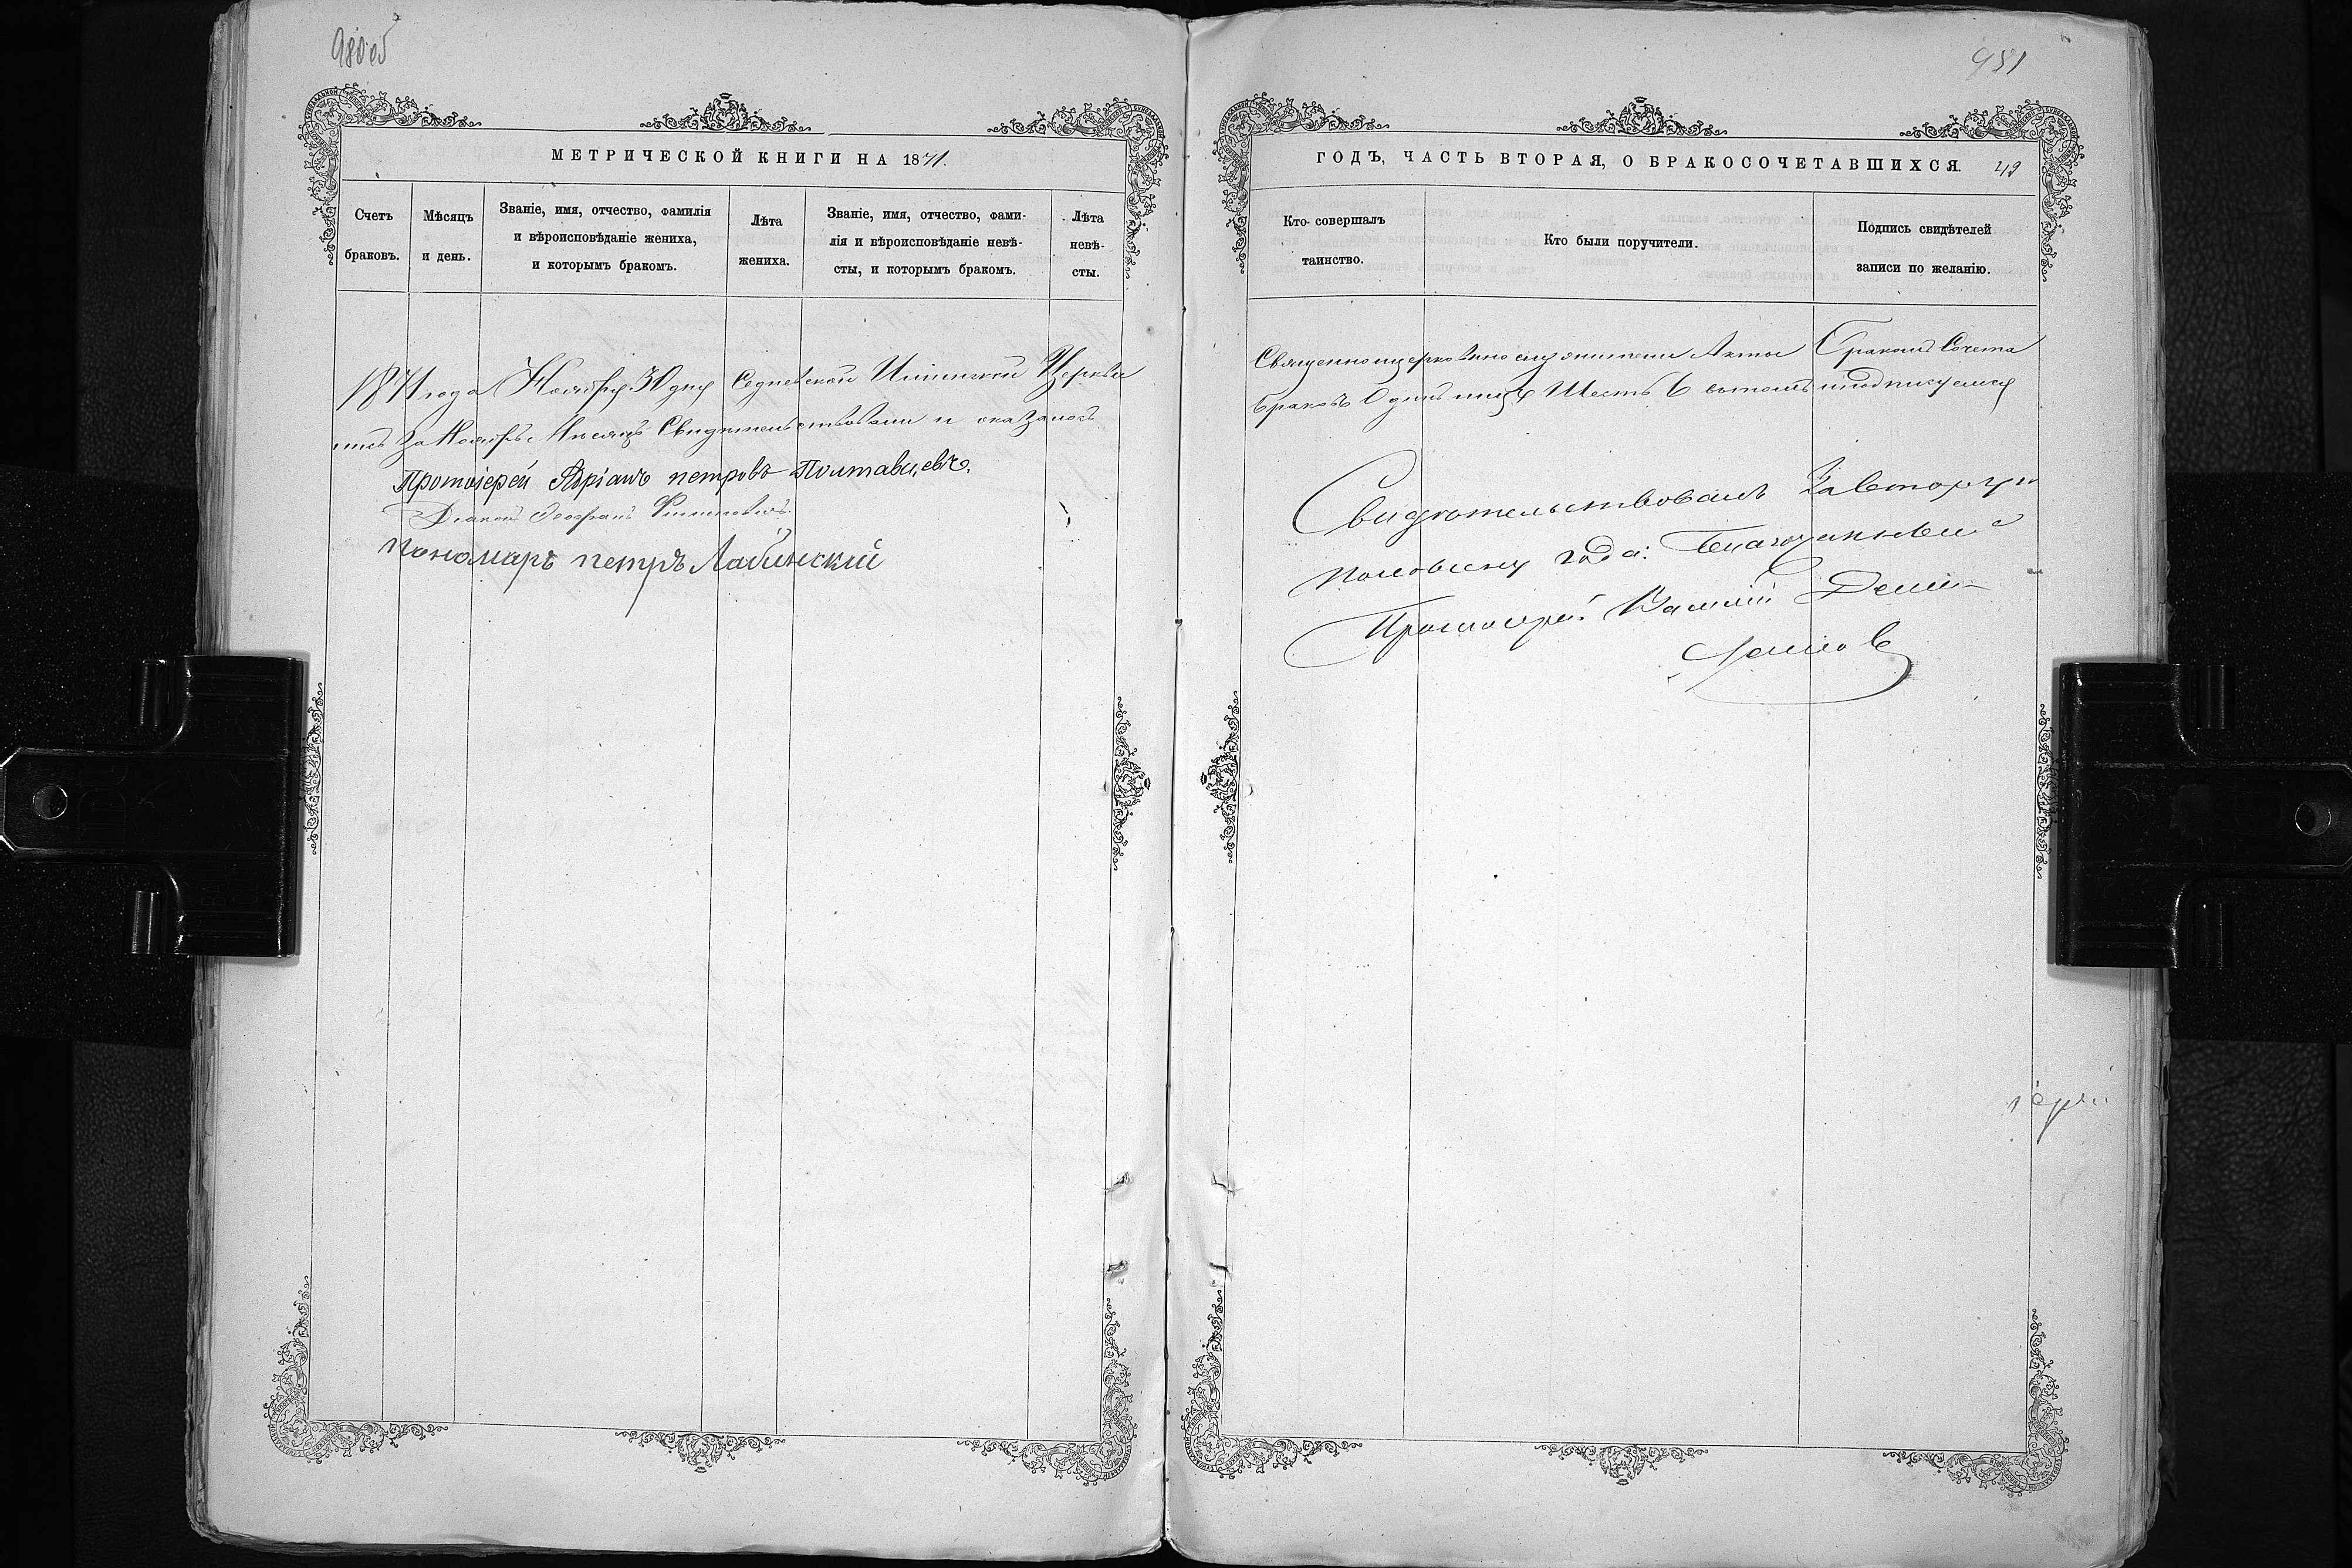 980об
МЕТРИЧЕСКОЙ КНИГИ НА 1871.
Счетъ браковъ.
Мѣсяцъ и день.
Званіе, имя, отчество, фамилія
и вѣроисповѣданіе жениха,
и которымъ бракомъ.
Лѣта жениха.
Званіе, имя, отчество, фами-
лія и вѣроисповѣданіе невѣ-
сты, и которымъ бракомъ.
Лѣта невѣ-
сты.
1871 года Ноября 30 дня Седневской Церкви
за Ноябрь Мѣсяцъ Свидѣтельствовали и оказалось
Протоіерей Адріанъ петровъ Полтавцевъ.
Діаконъ
Пономарь петръ Лабинскій
981
ГОДЪ, ЧАСТЬ ВТОРАЯ, О БРАКОСОЧЕТАВШИХСЯ. 49
Кто совершалъ
таинство.
Кто были поручители.
Подпись свидѣтелей
записи по желанію.
Священноицерковнослужители Акты Бракомъ Сочета
браковъ Одинъ Шесть 6 вътомъ иподписуемся
Свидѣтельствовалъ За вторую
половину года: Благочинный
Протоіерей Василій